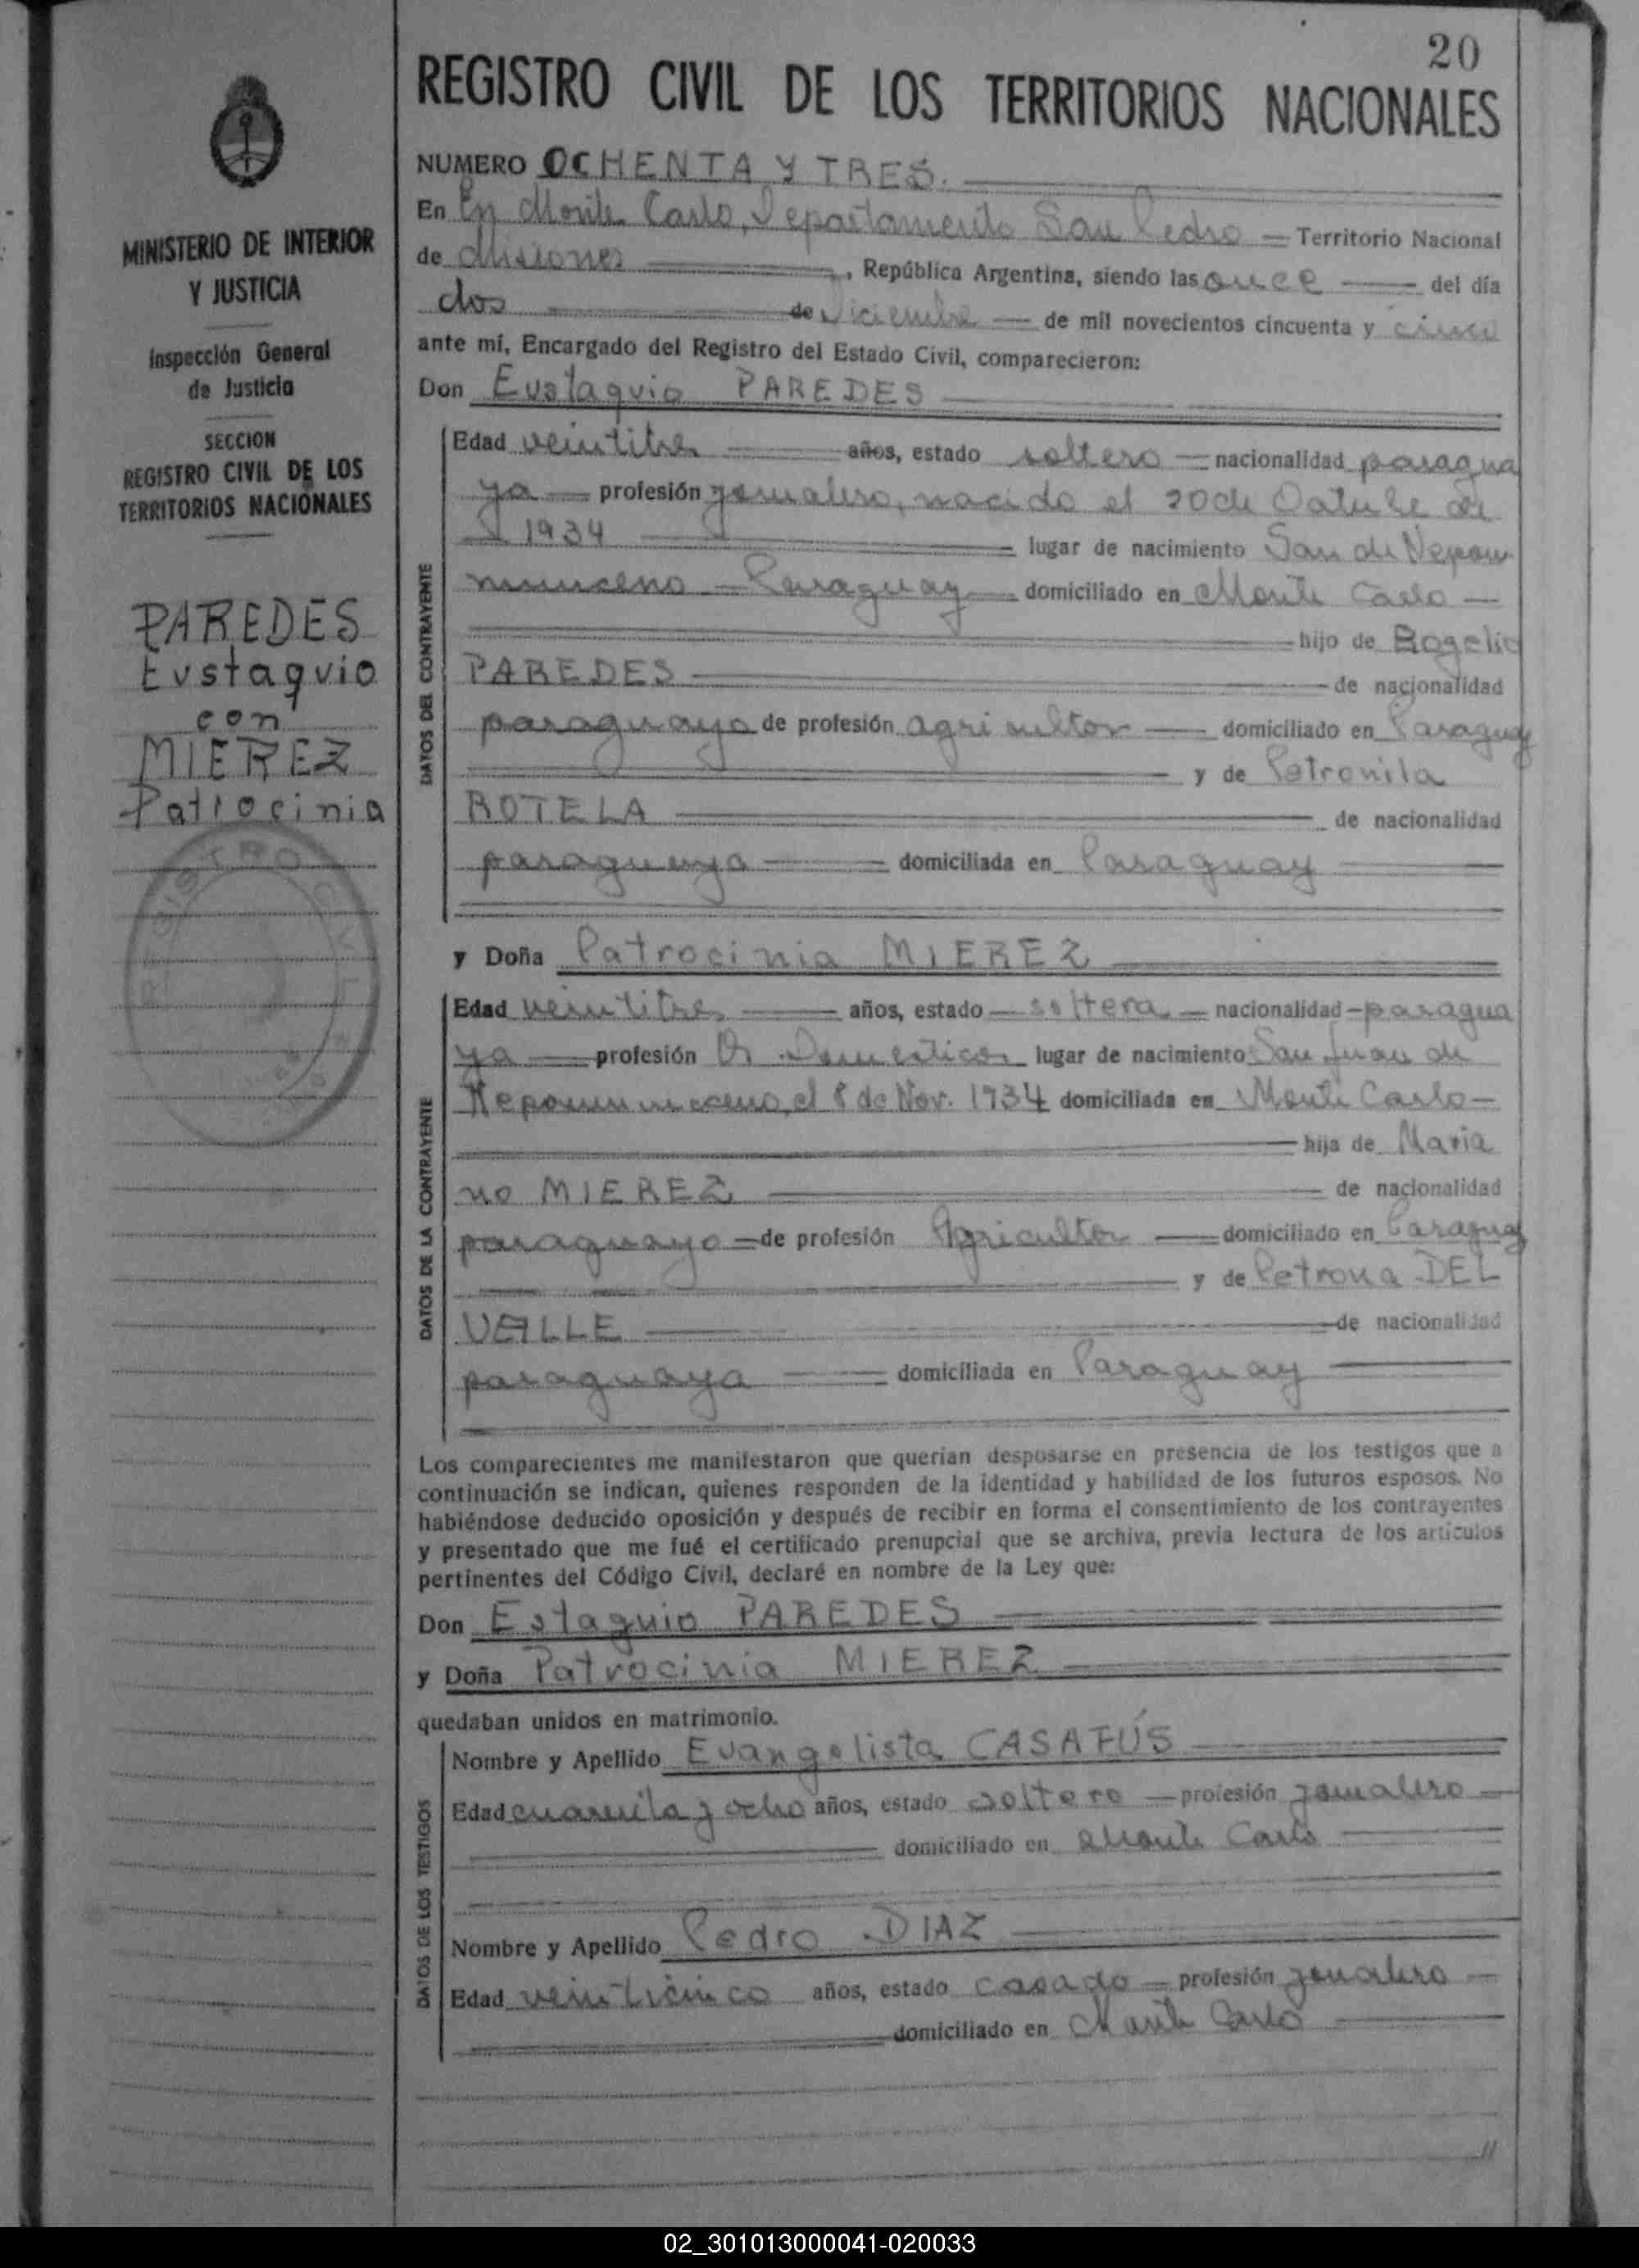 20
REGISTRO CIVIL DE LOS TERRITORIOS NACIONALES
MINISTERIO DE INTERIOR
Y JUSTICIA
Inspección General
de Justicia
SECCION
REGISTRO CIVIL DE LOS
TERRITORIOS NACIONALES
PAREDES
Eustaquio
con
MIEREZ
Patrocinia
NUMERO OCHENTA Y TRES.
En En Monte Carlo, Departamento San Pedro — Territorio Nacional
de Misiones, República Argentina, siendo las once del día
dos de Diciembre de mil novecientos cincuenta y cinco
ante mí, Encargado del Registro del Estado Civil, comparecieron:
Don Eustaquio PAREDES
DATOS DEL CONTRAYENTE
Edad veintitres años, estado soltero nacionalidad paragua
ya profesión jornalero, nacido el 20 de Octubre de
1934 lugar de nacimiento San de Nepom
Paraguay domiciliado en Monte Carlo
hijo de Rogelio
PAREDES de nacionalidad
paraguaya de profesión agricultor domiciliado en Paraguay
y de Petronila
ROTELA de nacionalidad
paraguaya domiciliada en Paraguay
y Doña Patrocinia MIEREZ
DATOS DE LA CONTRAYENTE
Edad veintitres años, estado soltera nacionalidad paragua
ya profesión Q. Domesticos lugar de nacimiento San Juan de
el 8 de Nov. 1934 domiciliada en Monte Carlo
hija de Maria
no MIEREZ de nacionalidad
paraguayo de profesión Agricultor domiciliado en Paraguay
y de Petrona DEL
VALLE de nacionalidad
paraguaya domiciliada en Paraguay
Los comparecientes me manifestaron que querían desposarse en presencia de los testigos que a
continuación se indican, quienes responden de la identidad y habilidad de los futuros esposos. No
habiéndose deducido oposición y después de recibir en forma el consentimiento de los contrayentes
y presentado que me fué el certificado prenupcial que se archiva, previa lectura de los artículos
pertinentes del Código Civil, declaré en nombre de la Ley que:
Don Estaquio PAREDES
y Doña Patrocinia MIEREZ
quedaban unidos en matrimonio.
DATOS DE LOS TESTIGOS
Nombre y Apellido Evangelista CASAFÚS
Edad cuarenta y ocho años, estado soltero profesión jornalero
domiciliado en Monte Carlo
Nombre y Apellido Pedro DIAZ
Edad veinticinco años, estado casado profesión jornalero
domiciliado en Monte Carlo
//
02_301013000041-020033